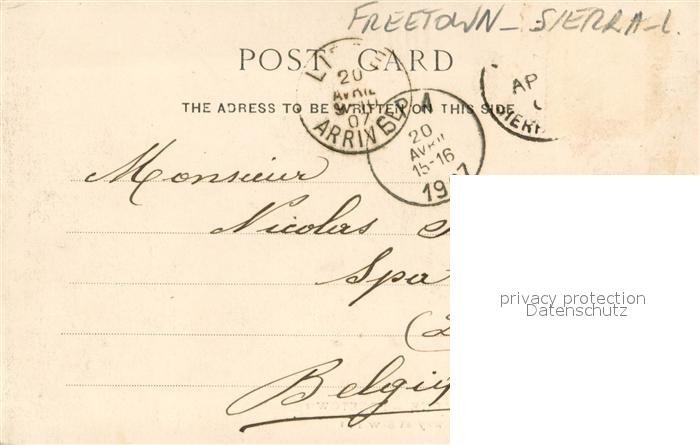 FREETOWN - SIERRA-L.
POST CARD
THE ADRESS TO BE WRITTEN ON THIS SIDE
20
AVRIL
07
20
AVRIL
15-16
AP
SIERR
Monsieur
Nicolas
Spa
privacy protection
Datenschutz
Belgiq